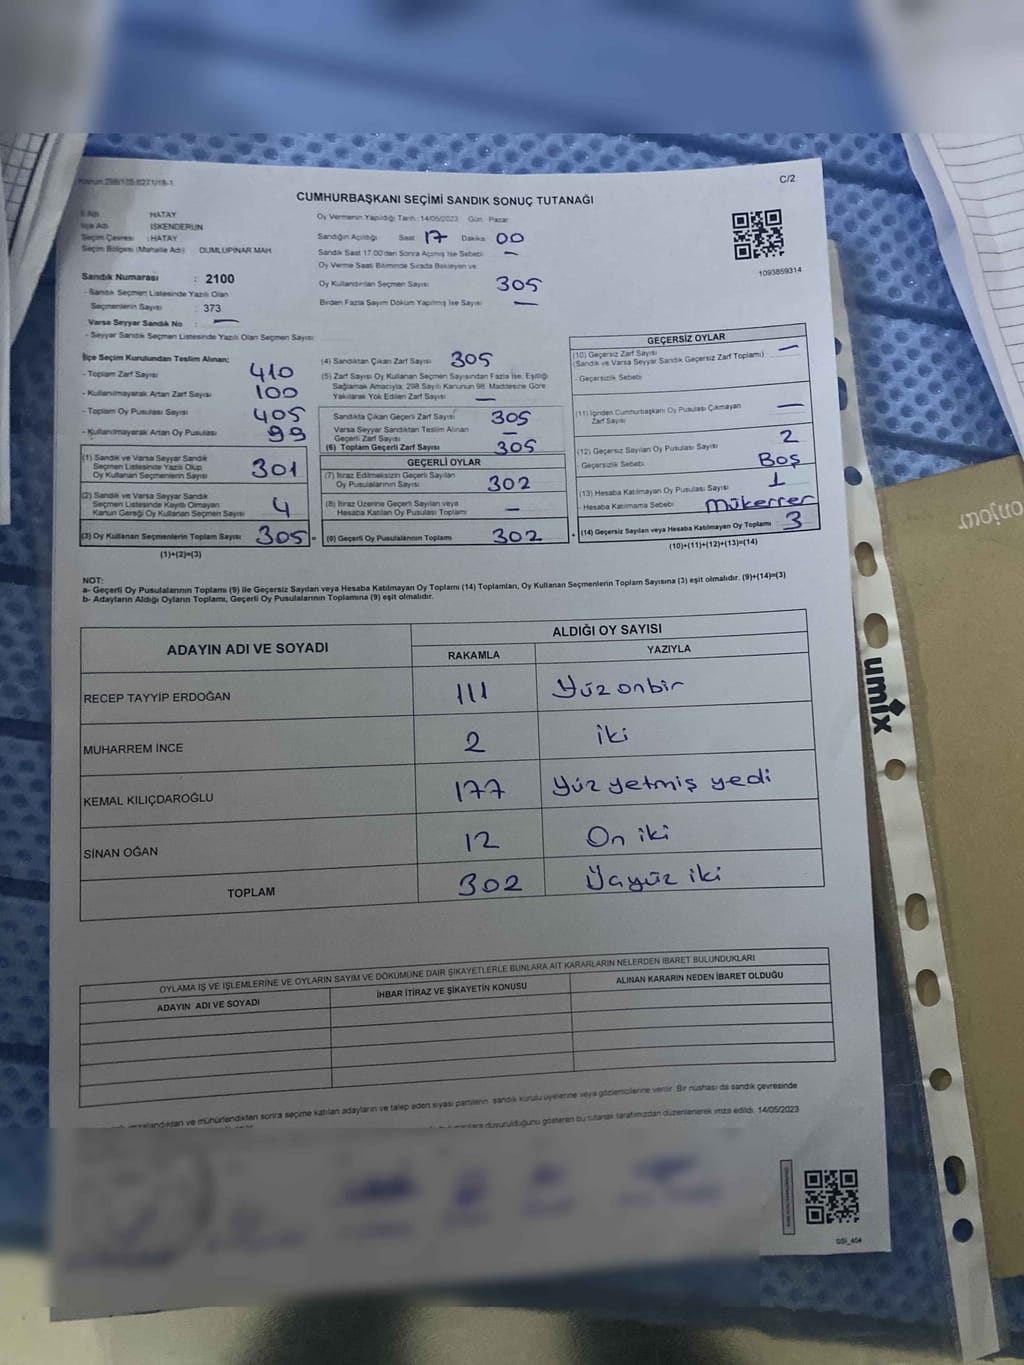 Kanun:298/105-6271/18-1
C/2
CUMHURBAŞKANI SEÇİMİ SANDIK SONUÇ TUTANAĞI
İl Adı HATAY
İlçe Adı İSKENDERUN
Seçim Çevresi : HATAY
Seçim Bölgesi (Mahalle Adı) DUMLUPINAR MAH
Sandık Numarası : 2100
- Sandık Seçmen Listesinde Yazılı Olan
Seçmenlerin Sayısı : 373
Varsa Seyyar Sandık No : —
- Seyyar Sandık Seçmen Listesinde Yazılı Olan Seçmen Sayısı
Oy Vermenin Yapıldığı Tarih: 14/05/2023 Gün: Pazar
Sandığın Açıldığı Saat 17 Dakika 00
Sandık Saat 17:00'dan Sonra Açılmış İse Sebebi —
Oy Verme Saati Bitiminde Sırada Bekleyen ve
Oy Kullandırılan Seçmen Sayısı 305
Birden Fazla Sayım Döküm Yapılmış İse Sayısı —
1093859314
İlçe Seçim Kurulundan Teslim Alınan;
- Toplam Zarf Sayısı 410
- Kullanılmayarak Artan Zarf Sayısı 100
- Toplam Oy Pusulası Sayısı 405
- Kullanılmayarak Artan Oy Pusulası 99
(1) Sandık ve Varsa Seyyar Sandık
Seçmen Listesinde Yazılı Olup
Oy Kullanan Seçmenlerin Sayısı 301
(2) Sandık ve Varsa Seyyar Sandık
Seçmen Listesinde Kayıtlı Olmayan
Kanun Gereği Oy Kullanan Seçmen Sayısı 4
(3) Oy Kullanan Seçmenlerin Toplam Sayısı 305 =
(1)+(2)=(3)
(4) Sandıktan Çıkan Zarf Sayısı 305
(5) Zarf Sayısı Oy Kullanan Seçmen Sayısından Fazla İse, Eşitliği
Sağlamak Amacıyla, 298 Sayılı Kanunun 98. Maddesine Göre
Yakılarak Yok Edilen Zarf Sayısı —
Sandıkta Çıkan Geçerli Zarf Sayısı 305
Varsa Seyyar Sandıktan Teslim Alınan
Geçerli Zarf Sayısı —
(6) Toplam Geçerli Zarf Sayısı 305
GEÇERLİ OYLAR
(7) İtiraz Edilmeksizin Geçerli Sayılan
Oy Pusulalarının Sayısı 302
(8) İtiraz Üzerine Geçerli Sayılan veya
Hesaba Katılan Oy Pusulası Toplamı —
(9) Geçerli Oy Pusulalarının Toplamı 302 +
GEÇERSİZ OYLAR
(10) Geçersiz Zarf Sayısı —
(Sandık ve Varsa Seyyar Sandık Geçersiz Zarf Toplamı)
- Geçersizlik Sebebi
(11) İçinden Cumhurbaşkanı Oy Pusulası Çıkmayan
Zarf Sayısı —
(12) Geçersiz Sayılan Oy Pusulası Sayısı 2
- Geçersizlik Sebebi Boş
(13) Hesaba Katılmayan Oy Pusulası Sayısı 1
- Hesaba Katılmama Sebebi Mükerrer
(14) Geçersiz Sayılan veya Hesaba Katılmayan Oy Toplamı 3
(10)+(11)+(12)+(13)=(14)
NOT:
a- Geçerli Oy Pusulalarının Toplamı (9) ile Geçersiz Sayılan veya Hesaba Katılmayan Oy Toplamı (14) Toplamları, Oy Kullanan Seçmenlerin Toplam Sayısına (3) eşit olmalıdır. (9)+(14)=(3)
b- Adayların Aldığı Oyların Toplamı, Geçerli Oy Pusulalarının Toplamına (9) eşit olmalıdır.
ADAYIN ADI VE SOYADI ALDIĞI OY SAYISI
RAKAMLA YAZIYLA
RECEP TAYYİP ERDOĞAN 111 Yüz onbir
MUHARREM İNCE 2 iki
KEMAL KILIÇDAROĞLU 177 Yüz yetmiş yedi
SİNAN OĞAN 12 On iki
TOPLAM 302 Üçyüz iki
OYLAMA İŞ VE İŞLEMLERİNE VE OYLARIN SAYIM VE DÖKÜMÜNE DAİR ŞİKAYETLERLE BUNLARA AİT KARARLARIN NELERDEN İBARET BULUNDUKLARI
ADAYIN ADI VE SOYADI İHBAR İTİRAZ VE ŞİKAYETİN KONUSU ALINAN KARARIN NEDEN İBARET OLDUĞU
imzalandıktan ve mühürlendikten sonra seçime katılan adayların ve talep eden siyasi partilerin sandık kurulu üyelerine veya gözlemcilerine verilir. Bir nüshası da sandık çevresinde
duyurulduğunu gösteren bu tutanak tarafımızdan düzenlenerek imza edildi. 14/05/2023
GSI_404
umix